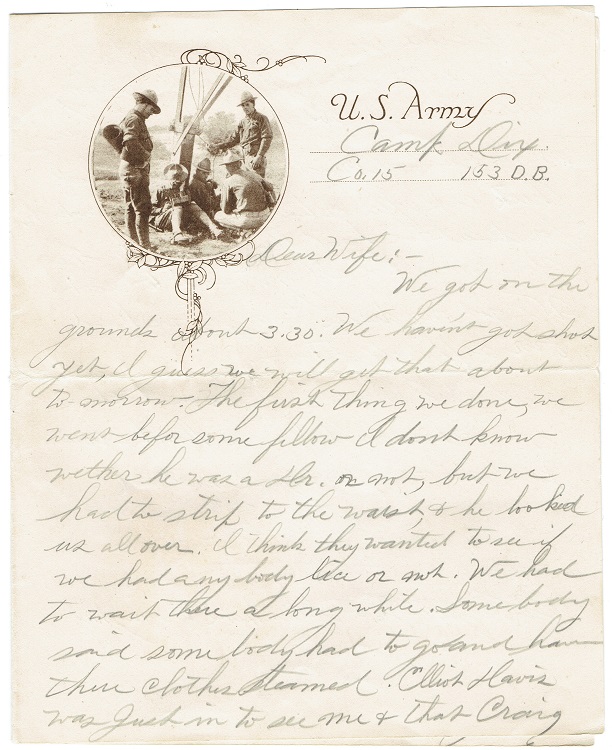 U. S. Army
Camp Dix.
Co. 15 153 D.B.
Dear Wife:-
We got on the
grounds about 3.30. We havent got shot
yet, I guess we will get that about
to-morrow. The first thing we done, we
went befor some fellow I dont know
wether he was a Dr. or not, but we
had to strip to the waist, & he looked
us all over. I think they wanted to see if
we had any body lice or not. We had
to wait there a long while. Somebody
said somebody had to go and have
there clothes steamed. Elliot Davis
was just in to see me & that Craig